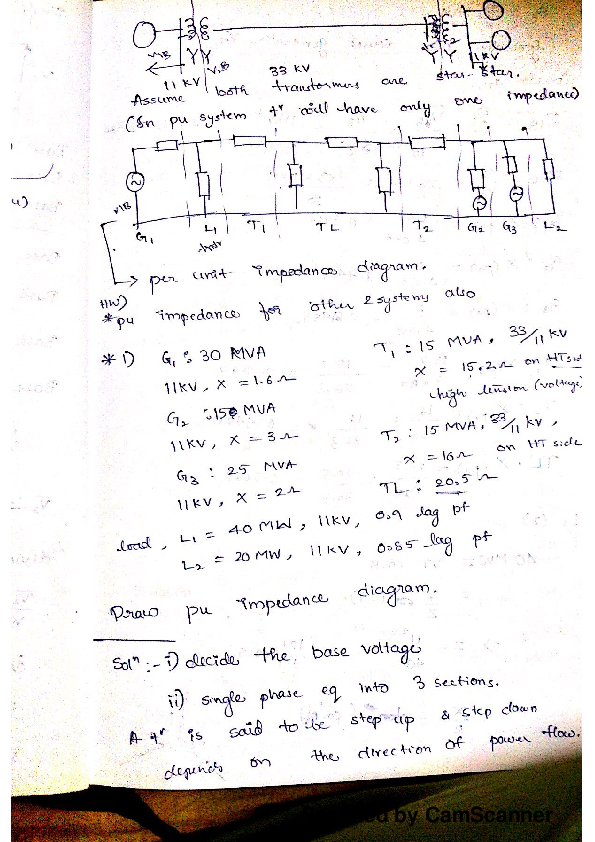 11 KV
33 KV
11 KV
Assume both transformers are star-star.
(In pu system tr will have only one impedance)
G1 L1 T1 TL T2 G2 G3 L2
per unit impedance diagram.
HW)
*pu impedance for other 2 systems also
*1) G1 : 30 MVA
11KV, X = 1.6 Ω
G2 : 15 MVA
11KV, X = 3 Ω
G3 : 25 MVA
11KV, X = 2Ω
T1 : 15 MVA, 33/11 KV
X = 15.2 Ω on HT side
high tension (voltage)
T2 : 15 MVA, 33/11 KV,
X = 16 Ω on HT side
TL : 20.5 Ω
load, L1 = 40 MW, 11KV, 0.9 lag pf
L2 = 20 MW, 11KV, 0.85 lag pf
Draw pu impedance diagram.
Soln :- i) decide the base voltage
ii) single phase eq into 3 sections.
A tr is said to be step up & step down
depends on the direction of power flow.
by CamScanner